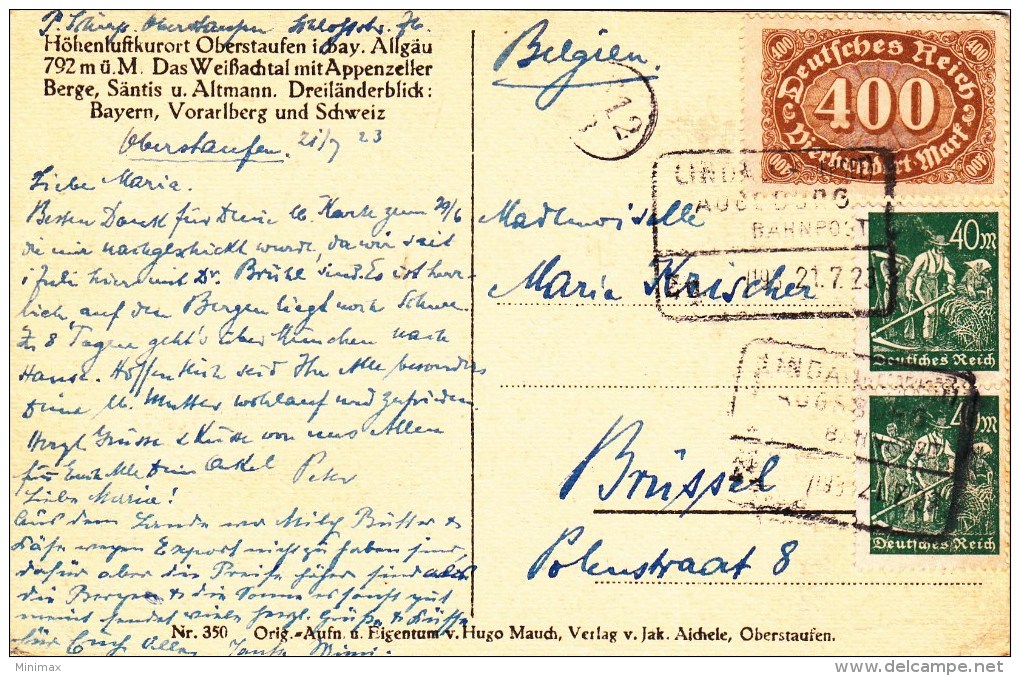 Oberstaufen
Höhenluftkurort Oberstaufen i. bay. Allgäu
792 m ü. M. Das Weißachtal mit Appenzeller
Berge, Säntis u. Altmann. Dreiländerblick:
Bayern, Vorarlberg und Schweiz
Oberstaufen. 21/7 23
Liebe Maria.
Besten Dank für Deine lb. Karte vom 29/6
die mir nachgeschickt wurde, da wir seit
1 Juli hier mit Dr. Brühl sind. Es ist herr-
lich, auf den Bergen liegt noch Schnee.
In 8 Tagen geht's über München nach
Hause. Hoffentlich seid Ihr Alle besonders
Deine lb. Mutter wohlauf und zufrieden
Herzl Grüsse & Küsse von uns Allen
für Euch Alle Dein Onkel Peter
Liebe Maria!
Aus dem Lande wo Milch Butter &
Käse wegen Export nicht zu haben sind,
dafür aber die Preise höher sind als
die Berge & die Sonne es sonst gut
meint sendet viele herzl. Grüße & Küsse
für Euch Alle Tante Mimi.
Belgien.
Mademoiselle
Maria Krischer
Brüssel
Polenstraat 8
Deutsches Reich
400
Vierhundert Mark
LINDAU
AUGSBURG
BAHNPOST
21.7.23
40 m
Deutsches Reich
LINDAU
AUGSBURG
40 m
Deutsches Reich
Nr. 350 Orig.-Aufn. u. Eigentum v. Hugo Mauch, Verlag v. Jak. Aichele, Oberstaufen.
Minimax
www.delcampe.net